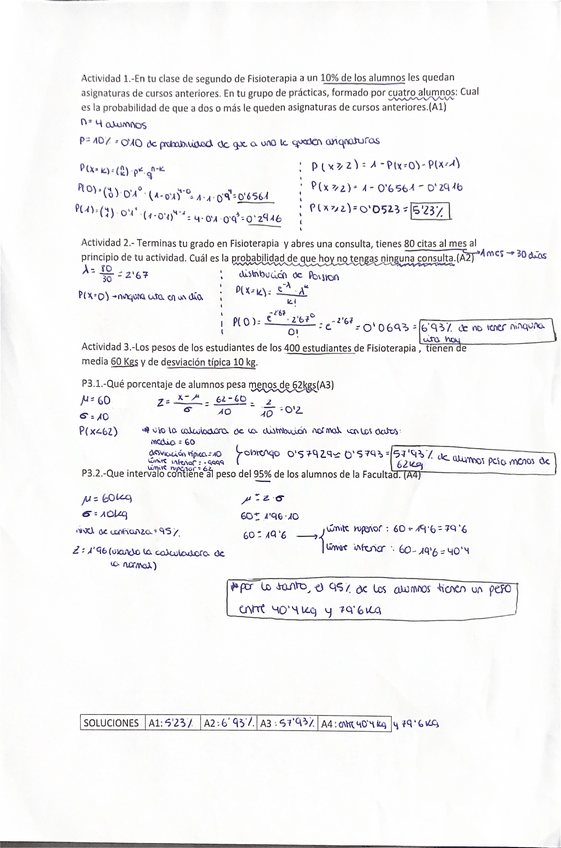 Actividad 1.-En tu clase de segundo de Fisioterapia a un 10% de los alumnos les quedan
asignaturas de cursos anteriores. En tu grupo de prácticas, formado por cuatro alumnos: Cual
es la probabilidad de que a dos o más le queden asignaturas de cursos anteriores.(A1)
n=4 alumnos
P=10%=0'10 de probabilidad de que a uno le queden asignaturas
P(x=k)=(n k)·p^k·q^n-k
P(0)=(4 0)·0'1^0·(1-0'1)^4-0=1·1·0'9^4=0'6561
P(1)=(4 1)·0'1^1·(1-0'1)^4-1=4·0'1·0'9^3=0'2916
P(x≥2)=1-P(x=0)-P(x=1)
P(x≥2)=1-0'6561-0'2916
P(x≥2)=0'0523=5'23%
Actividad 2.- Terminas tu grado en Fisioterapia y abres una consulta, tienes 80 citas al mes al →1 mes→30 días
principio de tu actividad. Cuál es la probabilidad de que hoy no tengas ninguna consulta.(A2)
λ=80/30=2'67
P(x=0)→ninguna cita en un día
distribución de Poisson
P(x=k)=e^-λ·λ^k/k!
P(0)=e^-2'67·2'67^0/0!=e^-2'67=0'0693=6'93% de no tener ninguna
cita hoy
Actividad 3.-Los pesos de los estudiantes de los 400 estudiantes de Fisioterapia , tienen de
media 60 Kgs y de desviación típica 10 kg.
P3.1.-Qué porcentaje de alumnos pesa menos de 62kgs(A3)
μ=60
σ=10
P(x<62)
Z=x-μ/σ=62-60/10=2/10=0'2
*uso la calculadora de la distribución normal con los datos:
media=60
desviación típica=10
límite inferior=-9999
límite superior=62
obtengo 0'57929≈0'5793=57'93% de alumnos pesa menos de
62kg
P3.2.-Que intervalo contiene al peso del 95% de los alumnos de la Facultad. (A4)
μ=60kg
σ=10kg
nivel de confianza=95%
Z=1'96(usando la calculadora de
la normal)
μ±Z·σ
60±1'96·10
60±19'6
límite superior: 60+19'6=79'6
límite inferior: 60-19'6=40'4
*por lo tanto, el 95% de los alumnos tienen un peso
entre 40'4kg y 79'6kg
SOLUCIONES A1:5'23% A2:6'93% A3:57'93% A4:entre 40'4kg y 79'6kg